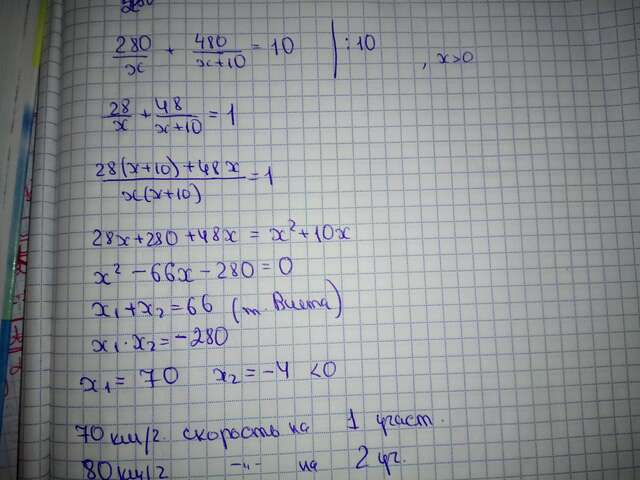 280/x + 480/(x+10) = 10 | :10 , x>0
28/x + 48/(x+10) = 1
(28(x+10)+48x)/(x(x+10)) = 1
28x+280+48x = x²+10x
x²-66x-280=0
x₁+x₂=66 (т. Виета)
x₁·x₂=-280
x₁=70 x₂=-4 <0
70 км/г. скорость на 1 участ.
80 км/г -"- на 2 уч.